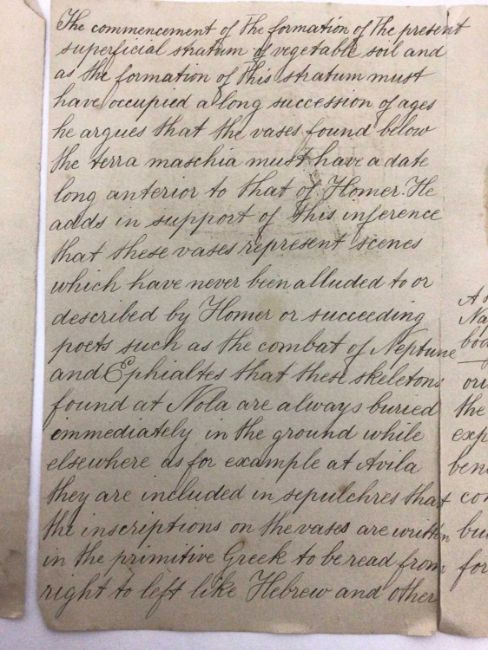 The commencement of The formation of The present
superficial stratum of vegetable soil and
as the formation of This stratum must
have occupied a long succession of ages
he argues that the vases found below
the terra maschia must have a date
long anterior to that of Homer. He
adds in support of this inference
that these vases represent scenes
which have never been alluded to or
described by Homer or succeeding
poets such as the combat of Neptune
and Ephialtes that these skeletons
found at Nola are always buried
immediately in the ground while
elsewhere as for example at Avila
they are included in sepulchres that
the inscriptions on the vases are written
in the primitive Greek to be read from
right to left like Hebrew and other
A
Na
bod
ori
the
exp
ben
con
bu
for